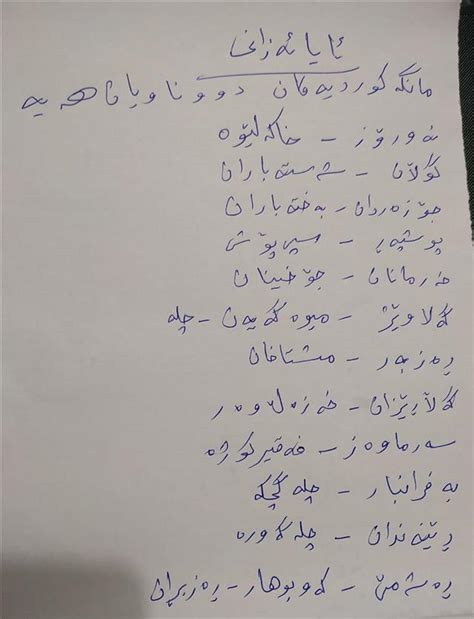 ئایا ئەزانی
مانگە کوردیەکان دوو ناویان هەیە
نەورۆز - خاکەلێوە
گوڵان - شەستەباران
جۆزەردان - بەختەباران
پوشپەر - سپی پۆش
خەرمانان - جۆخینان
گەلاوێژ - میوەگەیەن - چلە
ڕەزبەر - مشتاخان
گەڵاڕێزان - خەزەڵوەر
سەرماوەز - فەقیرکوژە
بەفرانبار - چلە گچکە
ڕێبەندان - چلە گەورە
ڕەشەمێ - کەوبوهار - ڕەزبڕان